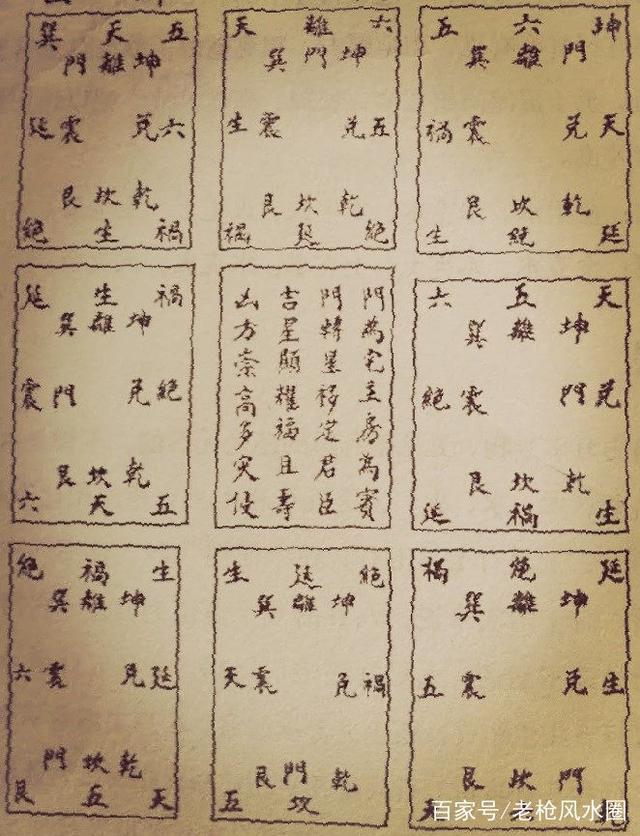 巽 天 五
門 離 坤
延 震 兌 六
艮 坎 乾
絕 生 禍
天 離 六
巽 門 坤
生 震 兌 五
艮 坎 乾
禍 延 絕
五 六 坤
巽 離 門
禍 震 兌 天
艮 坎 乾
生 絕 延
延 生 禍
巽 離 坤
震 門 兌 絕
艮 坎 乾
六 天 五
門為宅主房為賓
門轉星移定君臣
吉星顯耀福且壽
凶方崇高多灾侵
六 五 天
巽 離 坤
絕 震 門 兌
艮 坎 乾
延 禍 生
絕 禍 生
巽 離 坤
六 震 兌 延
門 坎 乾
艮 五 天
生 延 絕
巽 離 坤
天 震 兌 禍
艮 門 乾
五 坎
禍 絕 延
巽 離 坤
五 震 兌 生
艮 坎 門
百家号/老枪风水圈